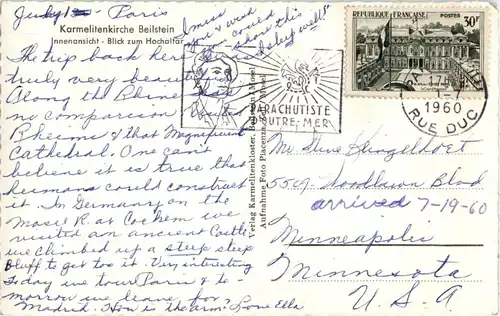 July 1 - Paris
I miss
you & wish
you could
share this
lovely
Karmelitenkirche Beilstein
Innenansicht - Blick zum Hochaltar
The trip back here
truly very beautiful
Along the Rhine
no comparison
Rheims & that Magnificent
Cathedral. One can't
believe it is true that
humans could construct
it. In Germany on the
Mosel R. at Cochem we
visited an ancient Castle
we climbed up a steep steep
bluff to get to it. Very interesting
Today we tour Paris & to-
morrow we leave for
Madrid. How is the arm? Love Ella
Verlag Karmelitenkloster, Beilstein/Mosel
Aufnahme Foto Piacenza
PARACHUTISTE
OUTRE-MER
RÉPUBLIQUE FRANÇAISE
POSTES
30F
17
1-7
1960
RUE DUC
Mr
5509 Woodlawn Blvd
arrived 7-19-60
Minneapolis
Minnesota
U.S.A